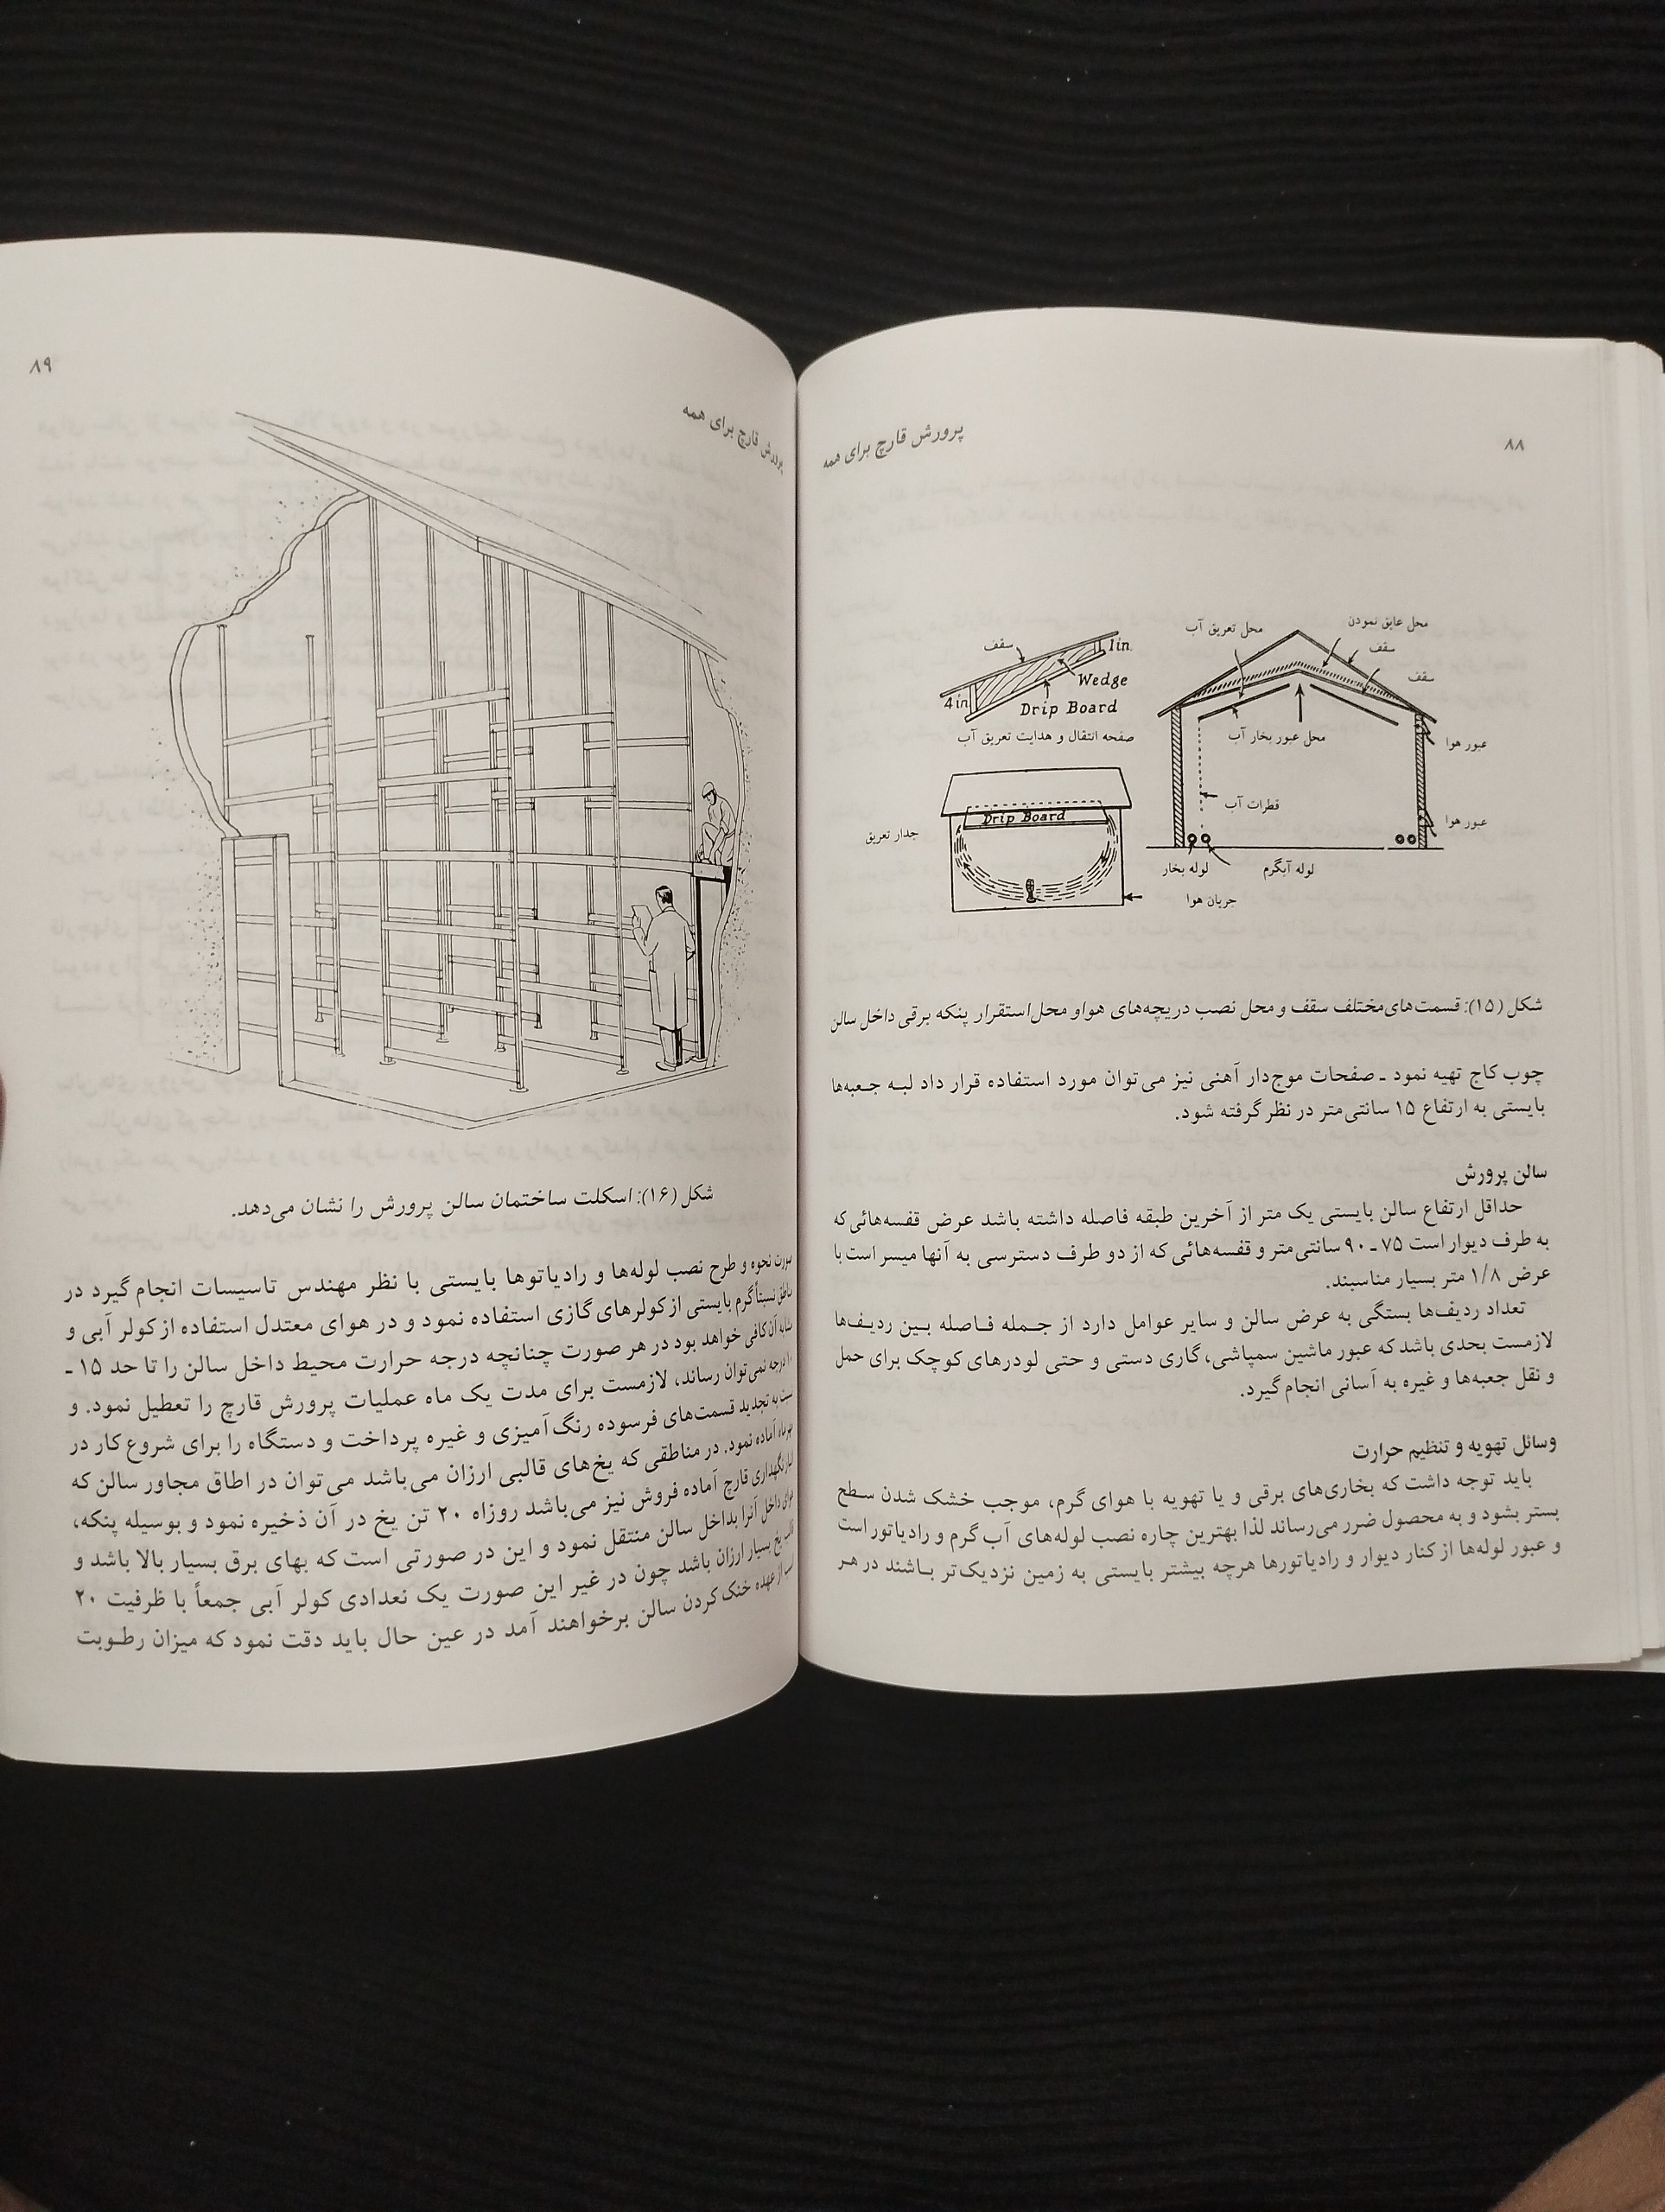 ۸۸
پرورش قارچ برای همه
محل عایق نمودن
محل تعریق آب
سقف
سقف
سقف
1in.
Wedge
4in
Drip Board
صفحه انتقال و هدایت تعریق آب
محل عبور بخار آب
عبور هوا
قطرات آب
عبور هوا
Drip Board
جدار تعریق
لوله آبگرم
لوله بخار
جریان هوا
شکل (۱۵): قسمت‌های مختلف سقف و محل نصب دریچه‌های هوا و محل استقرار پنکه برقی داخل سالن
چوب کاج تهیه نمود ـ صفحات موج‌دار آهنی نیز می‌توان مورد استفاده قرار داد لبه جعبه‌ها
بایستی به ارتفاع ۱۵ سانتی‌متر در نظر گرفته شود.
سالن پرورش
حداقل ارتفاع سالن بایستی یک متر از آخرین طبقه فاصله داشته باشد عرض قفسه‌هائی که
به طرف دیوار است ۷۵ ـ ۹۰ سانتی‌متر و قفسه‌هائی که از دو طرف دسترسی به آنها میسر است با
عرض ۱/۸ متر بسیار مناسبند.
تعداد ردیف‌ها بستگی به عرض سالن و سایر عوامل دارد از جمله فاصله بین ردیف‌ها
لازمست بحدی باشد که عبور ماشین سمپاشی، گاری دستی و حتی لودرهای کوچک برای حمل
و نقل جعبه‌ها و غیره به آسانی انجام گیرد.
وسائل تهویه و تنظیم حرارت
باید توجه داشت که بخاری‌های برقی و یا تهویه با هوای گرم، موجب خشک شدن سطح
بستر بشود و به محصول ضرر می‌رساند لذا بهترین چاره نصب لوله‌های آب گرم و رادیاتور است
و عبور لوله‌ها از کنار دیوار و رادیاتورها هرچه بیشتر بایستی به زمین نزدیک‌تر باشند در هر
پرورش قارچ برای همه
۸۹
شکل (۱۶): اسکلت ساختمان سالن پرورش را نشان می‌دهد.
صورت نحوه و طرح نصب لوله‌ها و رادیاتوها بایستی با نظر مهندس تاسیسات انجام گیرد در
مناطق نسبتاً گرم بایستی از کولرهای گازی استفاده نمود و در هوای معتدل استفاده از کولر آبی و
مشابه آن کافی خواهد بود در هر صورت چنانچه درجه حرارت محیط داخل سالن را تا حد ۱۵ ـ
درجه نمی‌توان رساند، لازمست برای مدت یک ماه عملیات پرورش قارچ را تعطیل نمود. و
به تجدید قسمت‌های فرسوده رنگ‌آمیزی و غیره پرداخت و دستگاه را برای شروع کار در
آماده نمود. در مناطقی که یخ‌های قالبی ارزان می‌باشد می‌توان در اطاق مجاور سالن که
انبار نگهداری قارچ آماده فروش نیز می‌باشد روزاه ۲۰ تن یخ در آن ذخیره نمود و بوسیله پنکه،
هوای داخل آنرا بداخل سالن منتقل نمود و این در صورتی است که بهای برق بسیار بالا باشد و
یخ بسیار ارزان باشد چون در غیر این صورت یک نعدادی کولر آبی جمعاً با ظرفیت ۲۰
از عهده خنک کردن سالن برخواهند آمد در عین حال باید دقت نمود که میزان رطوبت